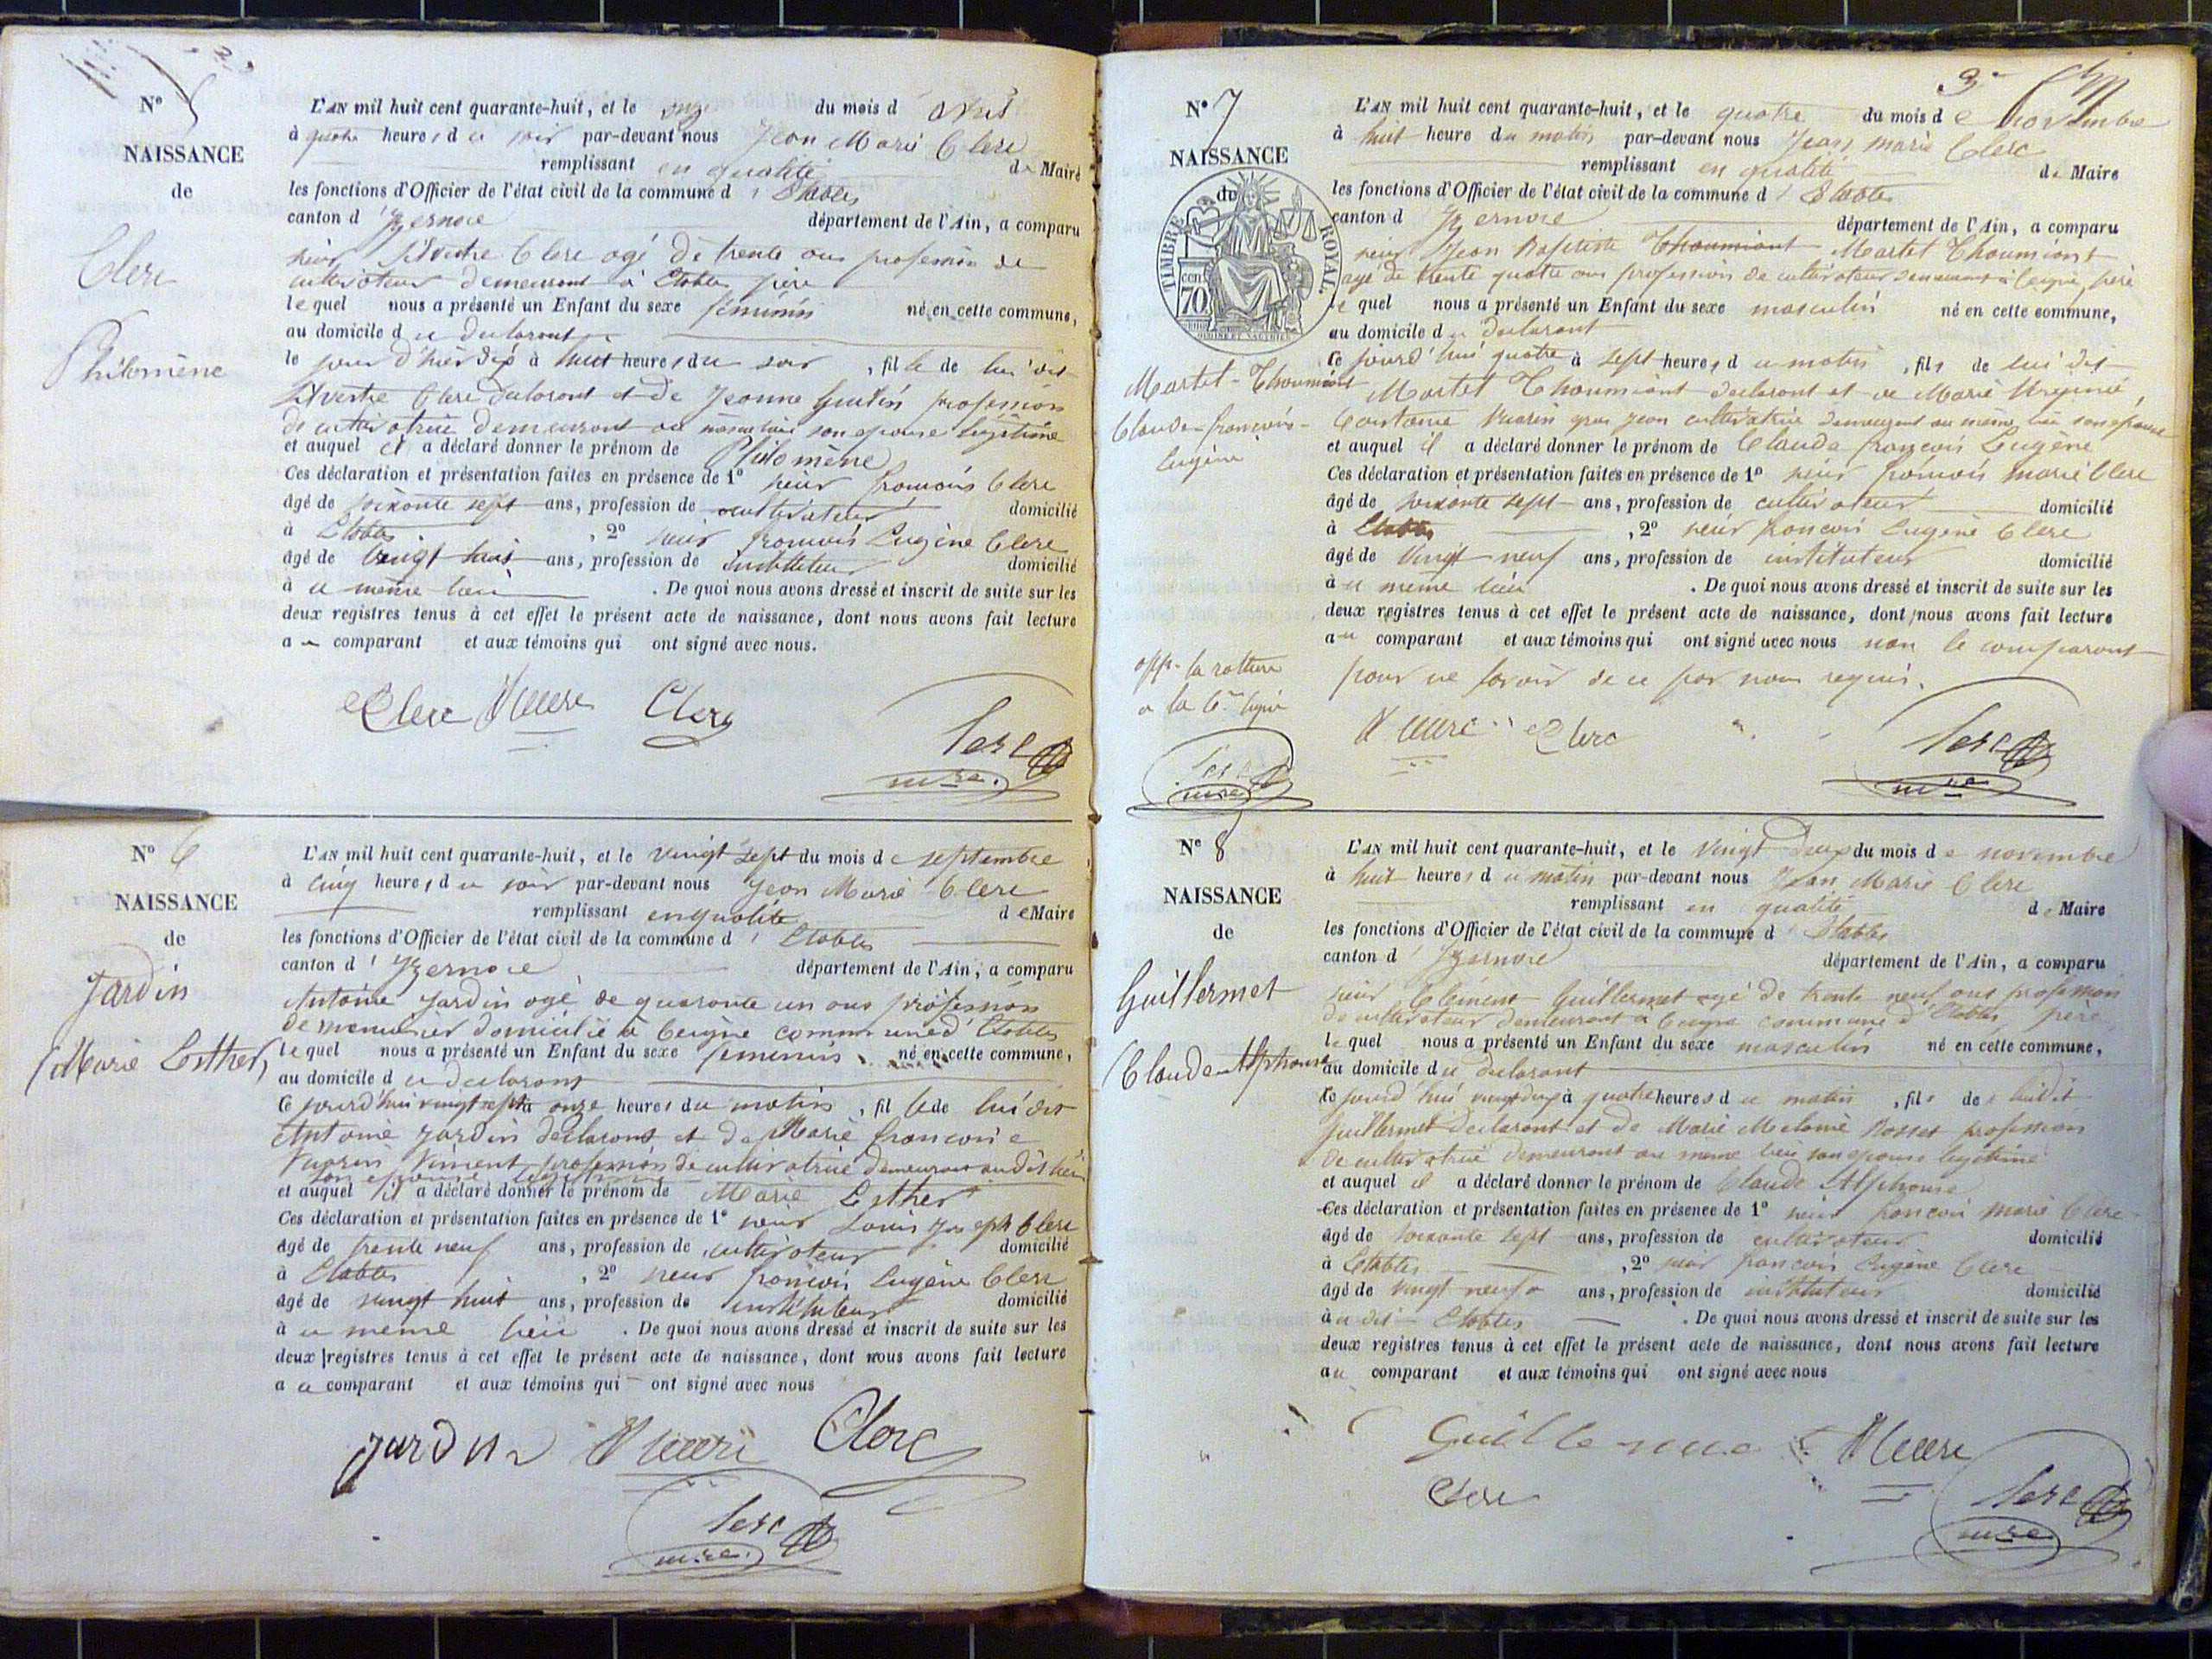 N° 5
NAISSANCE
de
Clerc
Philomène
L'AN mil huit cent quarante-huit, et le onze du mois d Avril
à quatre heures du soir par-devant nous Jean Marie Clerc
remplissant en qualité de Maire
les fonctions d'Officier de l'état civil de la commune d' Etables
canton d' Izernore département de l'Ain, a comparu
sieur Silvestre Clerc agé de trente ans profession de
cultivateur demeurant à Etables père
lequel nous a présenté un Enfant du sexe féminin né en cette commune,
au domicile du declarant
le jour d'hier dix à huit heures du soir, fille de lui dit
Silvestre Clerc declarant et de Jeanne profession
de cultivatrice demeurant au même lieu son epouse legitime
et auquel il a déclaré donner le prénom de Philomène
Ces déclaration et présentation faites en présence de 1° sieur francois Clerc
âgé de soixante sept ans, profession de cultivateur domicilié
à Etables, 2° sieur francois Eugène Clerc
âgé de vingt huit ans, profession de instituteur domicilié
à ce même lieu. De quoi nous avons dressé et inscrit de suite sur les
deux registres tenus à cet effet le présent acte de naissance, dont nous avons fait lecture
au comparant et aux témoins qui ont signé avec nous.
Clerc Clerc
Clerc
mre.
N° 6
NAISSANCE
de
Jardin
Marie Esther
L'AN mil huit cent quarante-huit, et le vingt sept du mois de septembre
à cinq heures du soir par-devant nous Jean Marie Clerc
remplissant en qualité de Maire
les fonctions d'Officier de l'état civil de la commune d' Etables
canton d' Izernore département de l'Ain, a comparu
Antoine Jardin agé de quarante un ans profession
de menuisier domicilié à Ceigne commune d'Etables
lequel nous a présenté un Enfant du sexe feminin né en cette commune,
au domicile du declarant
ce jourd'hui vingt sept à onze heures du matin, fille de lui dit
Antoine Jardin declarant et de Marie francoise
Vuarin Viment profession de cultivatrice demeurant au dit lieu
son epouse legitime
et auquel il a déclaré donner le prénom de Marie Esther
Ces déclaration et présentation faites en présence de 1° sieur Louis Joseph Clerc
âgé de trente neuf ans, profession de cultivateur domicilié
à Etables, 2° sieur francois Eugène Clerc
âgé de vingt huit ans, profession de instituteur domicilié
à ce meme lieu. De quoi nous avons dressé et inscrit de suite sur les
deux registres tenus à cet effet le présent acte de naissance, dont nous avons fait lecture
a ce comparant et aux témoins qui ont signé avec nous
Jardin Clerc
Clerc
mre.
3
N° 7
NAISSANCE
de
TIMBRE ROYAL
cen 70
Martet-Thoumiant
Claude-françois-
Eugène
app. la rature
a la 6me ligne
Clerc
mre
L'AN mil huit cent quarante-huit, et le quatre du mois de Novembre
à huit heure du matin par-devant nous Jean marie Clerc
remplissant en qualité de Maire
les fonctions d'Officier de l'état civil de la commune d' Etables
canton d' Izernore département de l'Ain, a comparu
sieur Jean Baptiste Thoumiant Martet Thoumiant
agé de trente quatre ans profession de cultivateur demeurant à Ceigne, père
lequel nous a présenté un Enfant du sexe masculin né en cette commune,
au domicile du declarant
ce jourd'hui quatre à sept heures du matin, fils de lui dit
Martet Thoumiant declarant et de Marie
Vuarin Jean cultivatrice demeurant au même lieu son epouse
et auquel il a déclaré donner le prénom de Claude françois Eugène
Ces déclaration et présentation faites en présence de 1° sieur francois marie Clerc
âgé de soixante sept ans, profession de cultivateur domicilié
à Etables, 2° sieur francois Eugene Clerc
âgé de vingt neuf ans, profession de instituteur domicilié
à ce meme lieu. De quoi nous avons dressé et inscrit de suite sur les
deux registres tenus à cet effet le présent acte de naissance, dont nous avons fait lecture
au comparant et aux témoins qui ont signé avec nous non le comparant
pour ne savoir de ce par nous requis.
Clerc
Clerc
mre
N° 8
NAISSANCE
de
Guillermet
Claude-Alphonse
L'AN mil huit cent quarante-huit, et le vingt deux du mois de novembre
à huit heures du matin par-devant nous Jean Marie Clerc
remplissant en qualité de Maire
les fonctions d'Officier de l'état civil de la commune d' Etables
canton d' Izernore département de l'Ain, a comparu
sieur Clément Guillermet agé de trente neuf ans profession
de cultivateur demeurant à Ceigne commune d'Etables père
lequel nous a présenté un Enfant du sexe masculin né en cette commune,
au domicile du declarant
ce jourd'hui vingt deux à quatre heures du matin, fils de lui dit
Guillermet declarant et de Marie Melanie Rosset profession
de cultivatrice demeurant au meme lieu son epouse legitime
et auquel il a déclaré donner le prénom de Claude Alphonse
Ces déclaration et présentation faites en présence de 1° sieur francois marie Clerc
âgé de soixante sept ans, profession de cultivateur domicilié
à Etables, 2° sieur francois Eugène Clerc
âgé de vingt neuf ans, profession de instituteur domicilié
à u dit Etables. De quoi nous avons dressé et inscrit de suite sur les
deux registres tenus à cet effet le présent acte de naissance, dont nous avons fait lecture
au comparant et aux témoins qui ont signé avec nous
Clerc
Clerc
mre